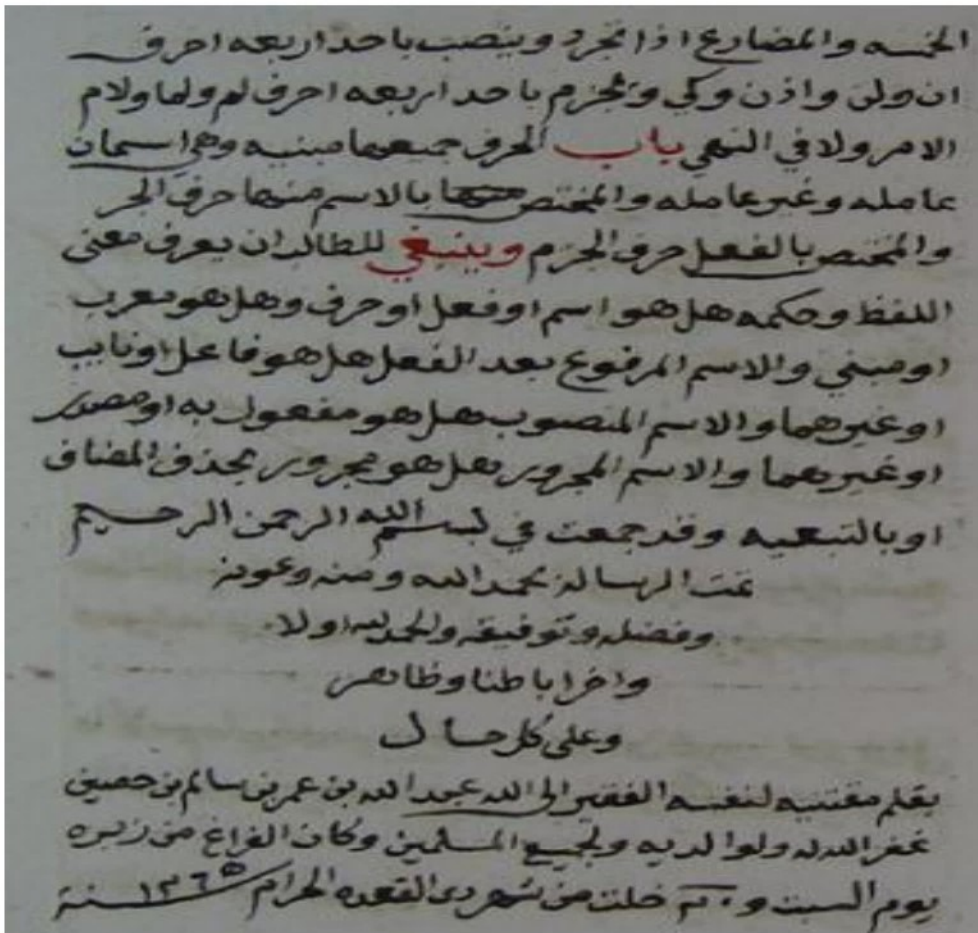 الخمسه والمضارع اذا تجرد وينصب باحد اربعه احرف
ان ولن واذن وكي ويجزم باحد اربعه احرف لم ولما ولام
الامر ولا في النهي باب الحرف جميعها مبنيه وهي اسمان
عامله وغير عامله والمختص بالاسم منها حرف الجر
والمختص بالفعل حرف الجزم وينبغي للطالب ان يعرف معنى
اللفظ وحكمه هل هو اسم او فعل او حرف وهل هو معرب
او مبني والاسم المرفوع بعد الفعل هل هو فاعل او نايب
او غيرهما والاسم المنصوب هل هو مفعول به او مصدر
او غيرهما والاسم المجرور هل هو مجرور بحذف المضاف
او بالتبعيه وقد جمعت في بسم الله الرحمن الرحيم
تمت الرساله بحمد الله ومنه وعونه
وفضله وتوفيقه والحمد لله اولا
واخرا باطنا وظاهر
وعلى كل حال
بقلم مقتنيه لنفسه الفقير الى الله عبد الله بن عمر بن سالم بن حصين
غفر الله له ولوالديه ولجميع المسلمين وكان الفراغ من زبره
يوم السبت و خلت من شهر ذي القعده الحرام ١٣٦٥ سنة